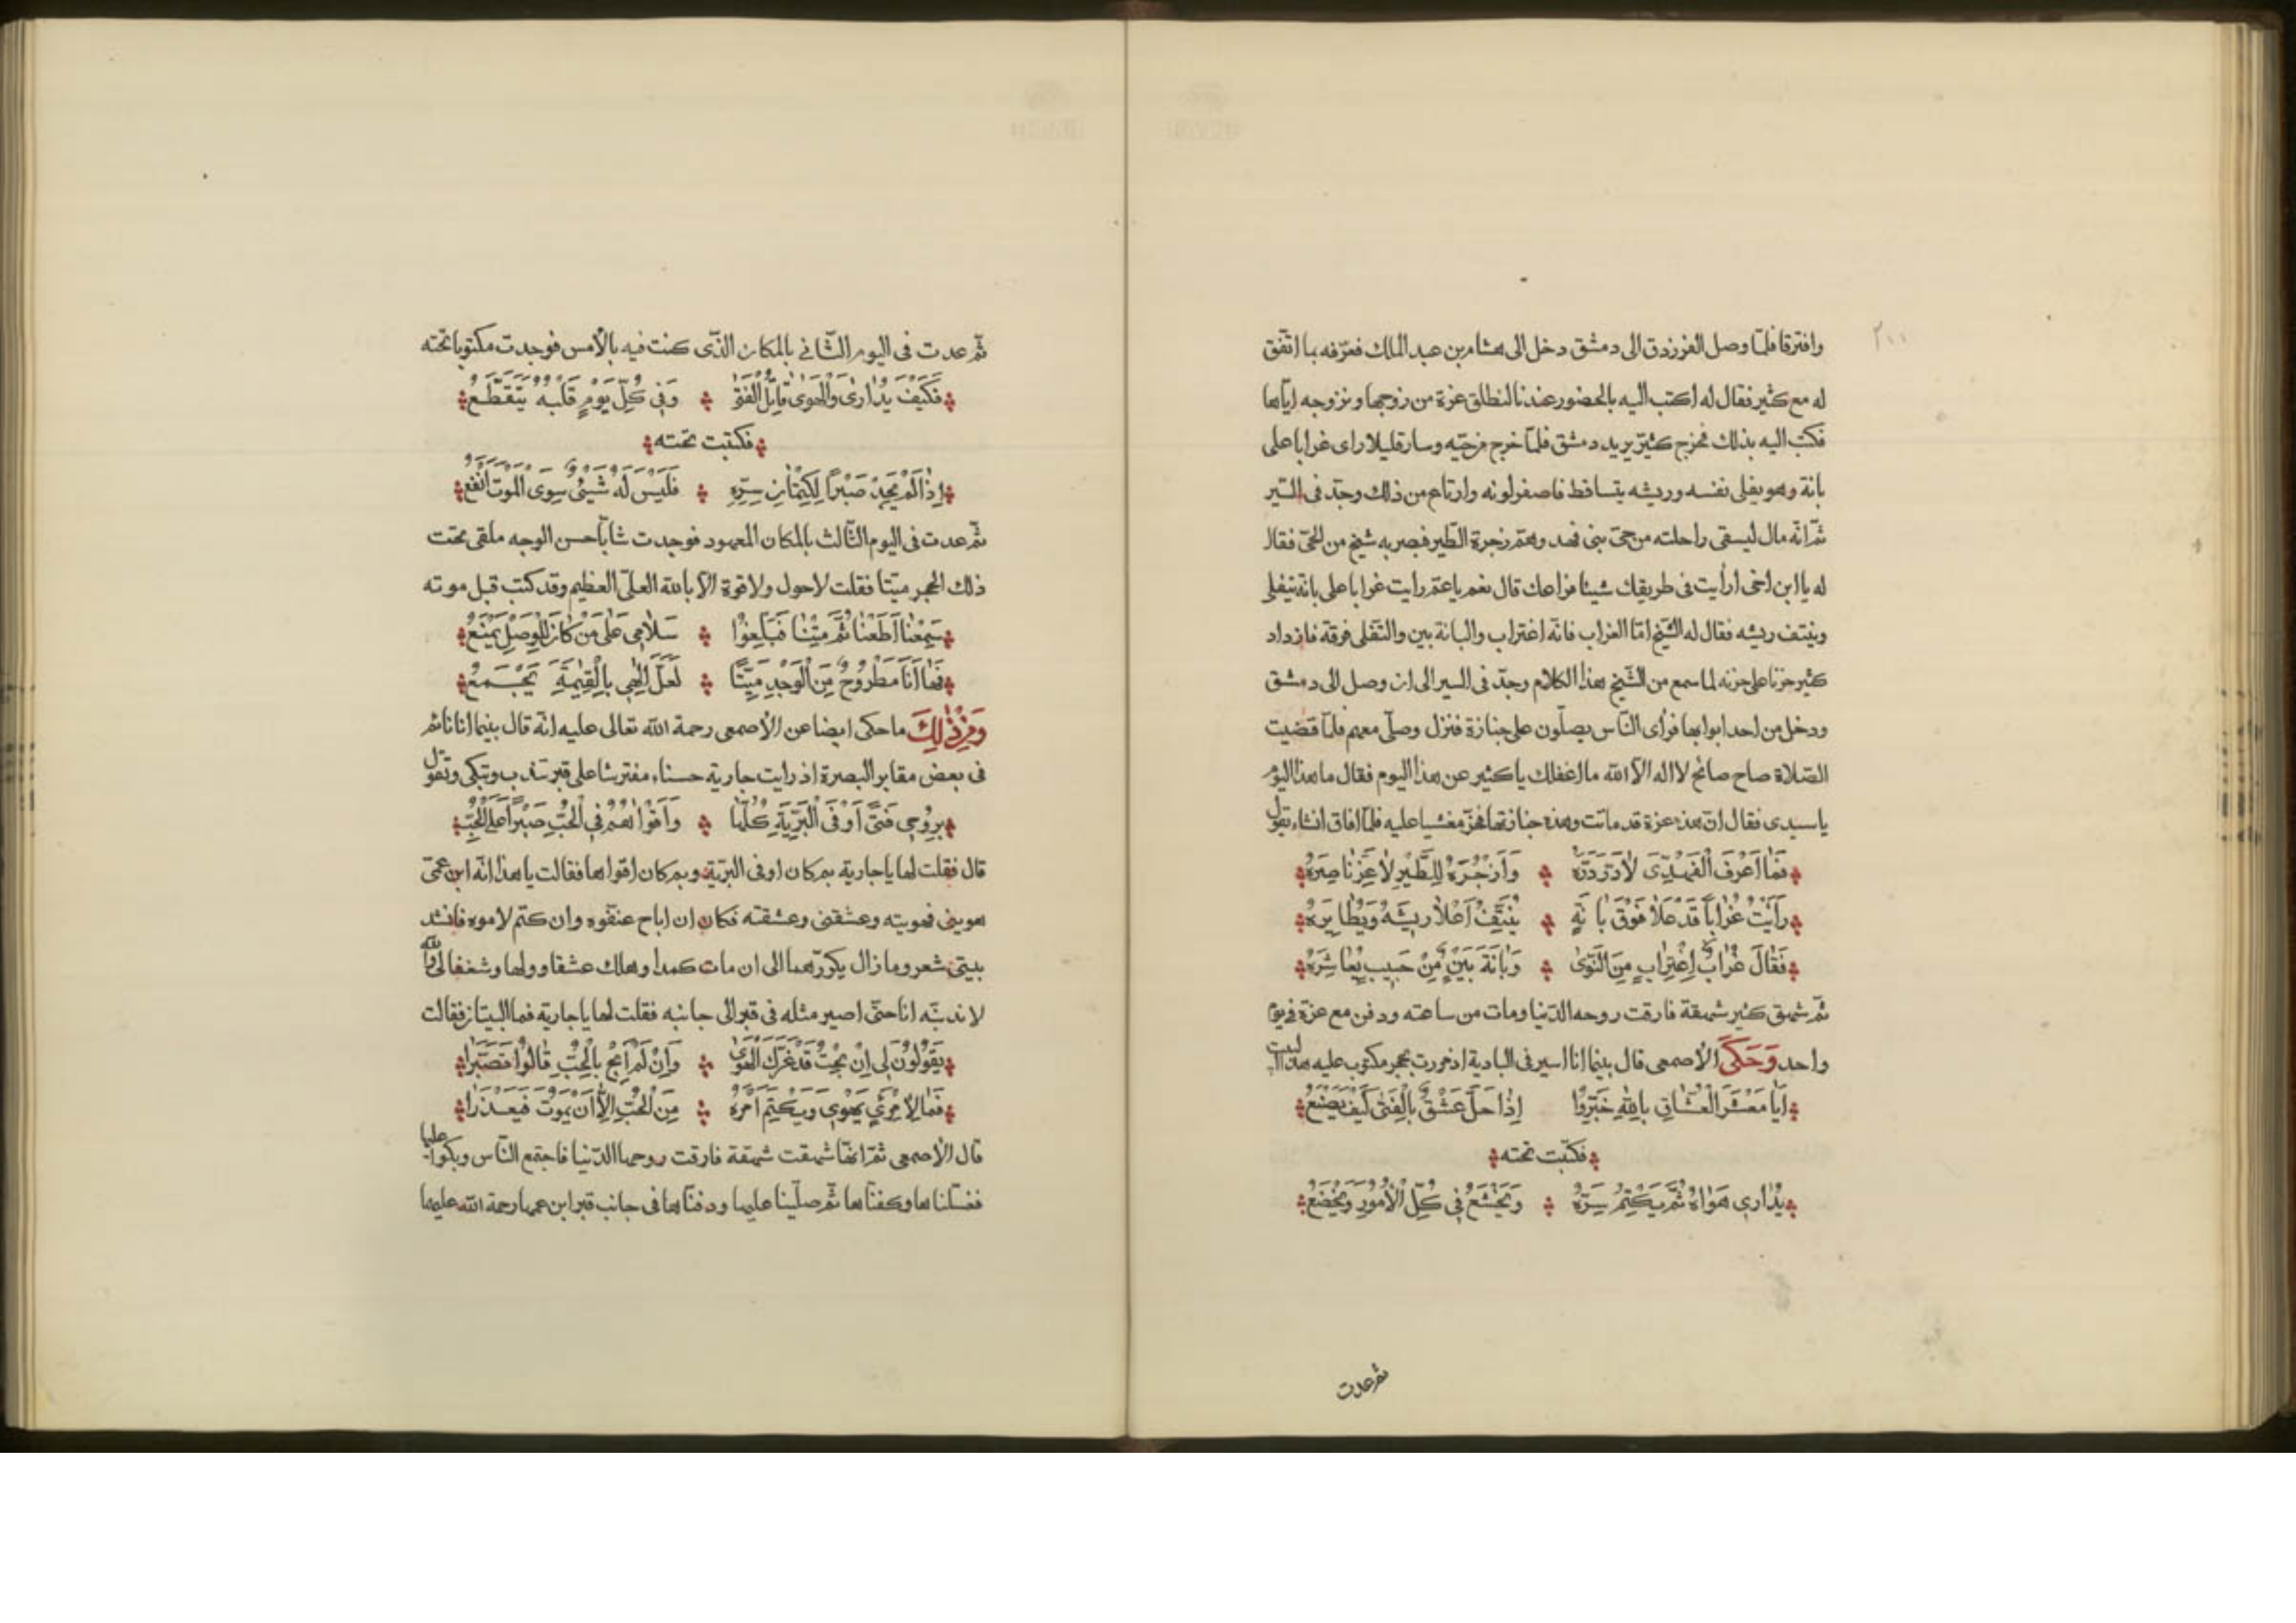 ٢٠٠
وافترقا فلمّا وصل الفرزدق الى دمشق دخل الى هشام بن عبد الملك فعرّفه بما اتّفق
له مع كثير فقال له اكتب اليه بالحضور عندنا لنطلق عزة من زوجها ونزوجه ايّاها
فكتب اليه بذلك فخرج كثيّر يريد دمشق فلمّا خرج من حيّه وسار قليلا راى غرابا على
بانة وهو يفلى نفسه وريشه يتساقط فاصفر لونه وارتاع من ذلك وجدّ فى السّير
ثمّ انّه مال ليسقى راحلته من حىّ بنى فهد وهم زجرة الطّير فبصر به شيخ من الحىّ فقال
له يا ابن اخى ارأيت فى طريقك شيئا فراعك قال نعم يا عمّ رايت غرابا على بانة يتفلى
وينتف ريشه فقال له الشّيخ امّا الغراب فانّه اغتراب والبانة بين والتّفلى فرقة فازداد
كثير حزنا على حزنه لما سمع من الشّيخ هذا الكلام وجدّ فى السير الى ان وصل الى دمشق
ودخل من احد ابوابها فرأى النّاس يصلّون على جنازة فنزل وصلّى معهم فلمّا قضيت
الصّلاة صاح صائح لا اله الّا الله ما اغفلك يا كثير عن هذا اليوم فقال ما هذا اليوم
يا سيدى فقال انّ هذه عزة قد ماتت وهذه جنازتها فخرّ مغشيا عليه فلمّا افاق انشاء يقول
فَمَا اَعْرَفَ الْفَهْدِىَّ لَادَرَّ دَرُّهُ وَاَزْجَرَهُ لِلطَّيْرِ لَاعَزَّ نَاصِرُهُ
رَاَيْتُ غُرَابًا قَدْ عَلَا فَوْقَ بَانَةٍ يُنَتِّفُ اَعْلَا رِيشَهُ وَيُطَايِرُهُ
فَقَالَ غُرَابٌ اِغْتِرَابٍ مِنَ النَّوَىٰ وَبَانَةَ بَيْنٍ مِنْ حَبِيبٍ يُعَاشِرُهُ
ثمّ شهق كثير شهقة فارقت روحه الدّنيا ومات من ساعته ودفن مع عزة فى يوم
واحد وَحَكَىَ الأصمعى قال بينما انا اسير فى البادية اذ مررت بحجر مكتوب عليه هذا البيت
اَيَا مَعْشَرَ الْعُشَّاقِ بِاللّٰهِ خَبِّرُوا اِذَا حَلَّ عَشْقٌ بِالْفَتَىٰ كَيْفَ يَصْنَعُ
فكتبت تحته
يُدَارِى هَوَاهُ ثُمَّ يَكْتُمُ سِرَّهُ وَيَخْشَعُ فِى كُلِّ الْاُمُورِ وَيَخْضَعُ
ثم عدت
ثمّ عدت فى اليوم الثّانى بالمكان الذّى كنت فيه بالأمس فوجدت مكتوبا تحته
فَكَيْفَ يُدَارِىٰ وَالْهَوَىٰ قَاتِلُ الْفَتَىٰ وَفِى كُلِّ يَوْمٍ قَلْبُهُ يَتَقَطَّعُ
فكتبت تحته
اِذَا لَمْ يَجِدْ صَبْرًا لِكِتْمَانِ سِرِّهِ فَلَيْسَ لَهُ شَيْئٌ سِوَى الْمَوْتِ اَنْفَعُ
ثمّ عدت فى اليوم الثّالث بالمكان المعهود فوجدت شابّا حسن الوجه ملقى تحت
ذلك الحجر ميّتا فقلت لا حول ولا قوة الّا بالله العلىّ العظيم وقد كتب قبل موته
سَمِعْنَا اَطَعْنَا ثُمَّ مِتْنَا فَبَلِّغُوْا سَلَامِى عَلَى مَنْ كَانَ لِلْوَصْلِ يَمْنَعُ
فَهَا اَنَا مَطْرُوحٌ مِنَ الْوَجْدِ مَيِّتًا لَعَلَّ اِلٰهِى بِالْقِيٰمَةِ يَجْمَعُ
وَمِنْ ذٰلِكَ ما حكى ايضا عن الأصمعى رحمة الله تعالى عليه انّه قال بينما انا نائم
فى بعض مقابر البصرة اذ رايت جارية حسناء مفترشا على قبر تندب وتبكى وتقول
بِرُوحِى فَتَىً اَوْفَى الْبَرِيَّةِ كُلِّهَا وَاَقْوَاهُمُ فِى الْحُبِّ صَبْرًا عَلَى الْحُبِّ
قال فقلت لها يا جارية بم كان اوفى البريّة وبم كان اقواها فقالت يا هذا انّه ابن عمّى
هوينى فهويته وعشقنى وعشقته فكان ان اباح عنفوه وان كتم لاموه فانشد
بيتى شعر وما زال يكرّرهما الى ان مات كمدا وهلك عشقا وولها وشغفا لى والله
لاندبنّه انا حتّى اصير مثله فى قبر الى جانبه فقلت لها يا جارية فما البيتان فقالت
يَقُوْلُوْنَ لِى اِنْ بُحْتُ قَدْ غَرَّكَ الْهَوَىٰ وَاِنْ لَمْ اَبُحْ بِالْحُبِّ قَالُوْا تَصَبَّرَا
فَمَا لِاِمْرِئٍ يَهْوِى وَيَكْتُمُ اَمْرَهُ مِنَ الْحُبِّ اِلَّا اَنْ يَمُوْتَ فَيَعْذَرَا
قال الأصمعى ثمّ انهّا شهقت شهقة فارقت روحها الدّنيا فاجتمع النّاس وبكوا عليها
فغسّلناها وكفنّاها ثمّ صلّينا عليها ودفنّاها فى جانب قبر ابن عمها رحمة الله عليهما